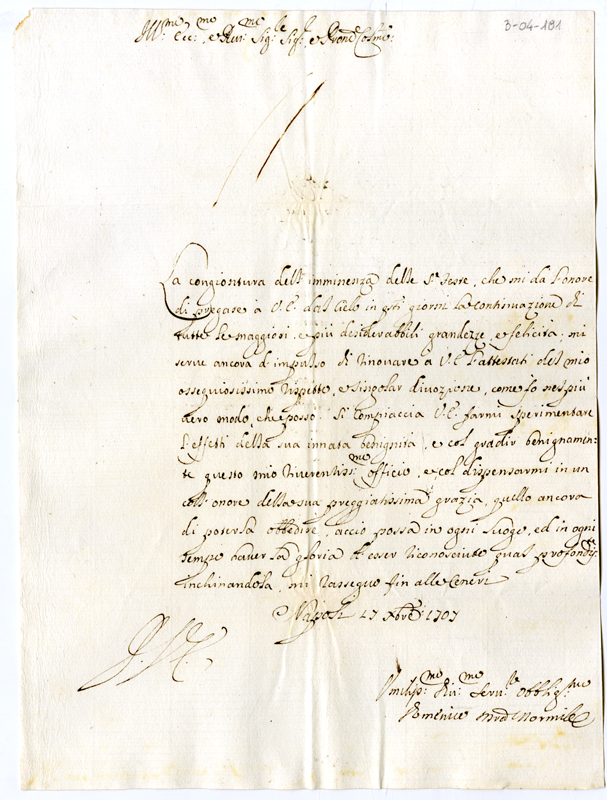 3-04-181
Ill.mo et Ecc.mo, e Rev.mo Sig.le Sig.r, e Prone Colmo:
La congiontura dell' imminenza delle S.te feste, che mi da l'onore
di pregare à V.E. dal Cielo in q.sti giorni la continuazione di
tutte le maggiori, e più desiderabbili grandezze, e felicità; mi
serve ancora d'impulso di rinovare à V.E. l'attestati del mio
ossequiosissimo rispetto, e singolar divozione, come fo nel più
vero modo, che posso. Si compiaccia V.E. farmi sperimentare
l'effetti della sua innata benignità, e col gradir benignamen-
te questo mio riverentiss.mo officio, e col dispensarmi in un
coll' onore della sua preggiatissima grazia, quello ancora
di poterla obbedire, acciò possa in ogni luogo, ed in ogni
tempo haver la gloria d'esser riconosciuto qual profond.te
inchinandola, mi rassegno fin alle Ceneri
Napoli 17 Xbre 1707
Umiliss.mo Riv.mo Serv.le Obblig.mo
Domenico